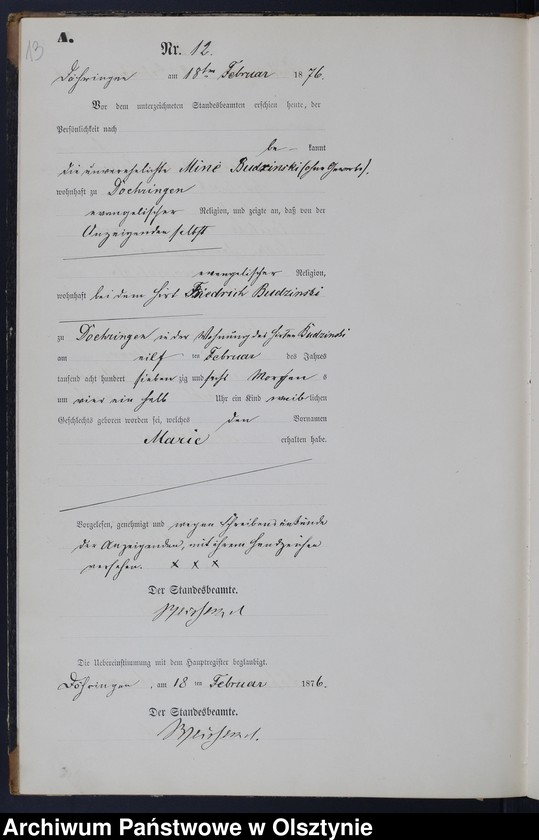 13
A.
Nr. 12.
Döhringen am 18ten Februar 1876.
Vor dem unterzeichneten Standesbeamten erschien heute, der
Persönlichkeit nach
be- kannt
die unverehelichte Mine Budzinski (ohne Gewerbe),
wohnhaft zu Doehringen
evangelischer Religion, und zeigte an, daß von der
Anzeigenden selbst
evangelischer Religion,
wohnhaft bei dem Hirt Friedrich Budzinski
zu Doehringen in der Wohnung des Hirten Budzinski
am eilf ten Februar des Jahres
tausend acht hundert sieben zig und sechs Morgens
um vier ein halb Uhr ein Kind weiblichen
Geschlechts geboren worden sei, welches den Vornamen
Marie erhalten habe.
Vorgelesen, genehmigt und wegen Schreibensunkunde
der Anzeigenden, mit ihrem Handzeichen
versehen. x x x
Der Standesbeamte.
Die Uebereinstimmung mit dem Hauptregister beglaubigt.
Döhringen, am 18 ten Februar 1876.
Der Standesbeamte.
Archiwum Państwowe w Olsztynie